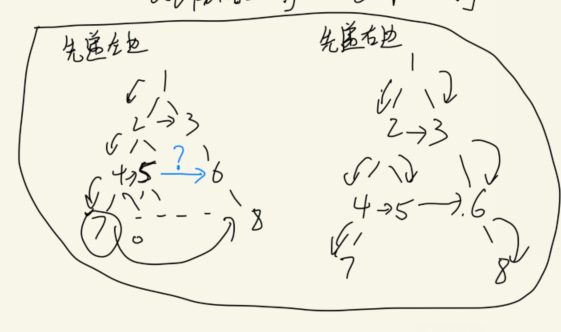 先递左边
1
2→3
4→5 ? →6
7 8
先递右边
1
2→3
4→5→6
7 8